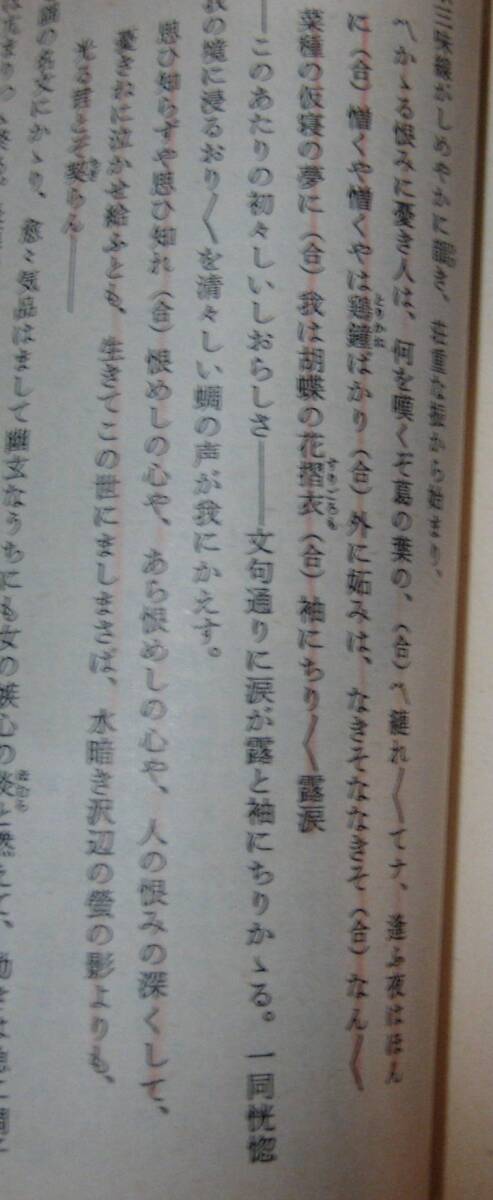 三味線がしめやかに響き、荘重な振から始まり、
〽かゝる恨みに憂き人は、何を嘆くぞ葛の葉の、（合）〽縺れ〳〵てナ、逢ふ夜はほん
に（合）憎くや憎くやは鶏鐘ばかり（合）外に妬みは、なきそななきそ（合）なん〳〵
菜種の仮寝の夢に（合）我は胡蝶の花摺衣（合）袖にちり〳〵露涙
――このあたりの初々しいしおらしさ――文句通りに涙が露と袖にちりかゝる。一同恍惚
の境に浸るおり〳〵を清々しい蜩の声が我にかえす。
思ひ知らずや思ひ知れ（合）恨めしの心や、あら恨めしの心や、人の恨みの深くして、
憂きねに泣かせ給ふとも、生きてこの世にましまさば、水暗き沢辺の螢の影よりも、
光る君とぞ契らん――
の名文にかゝり、愈々気品はまして幽玄なうちにも女の嫉心の炎と燃えて、